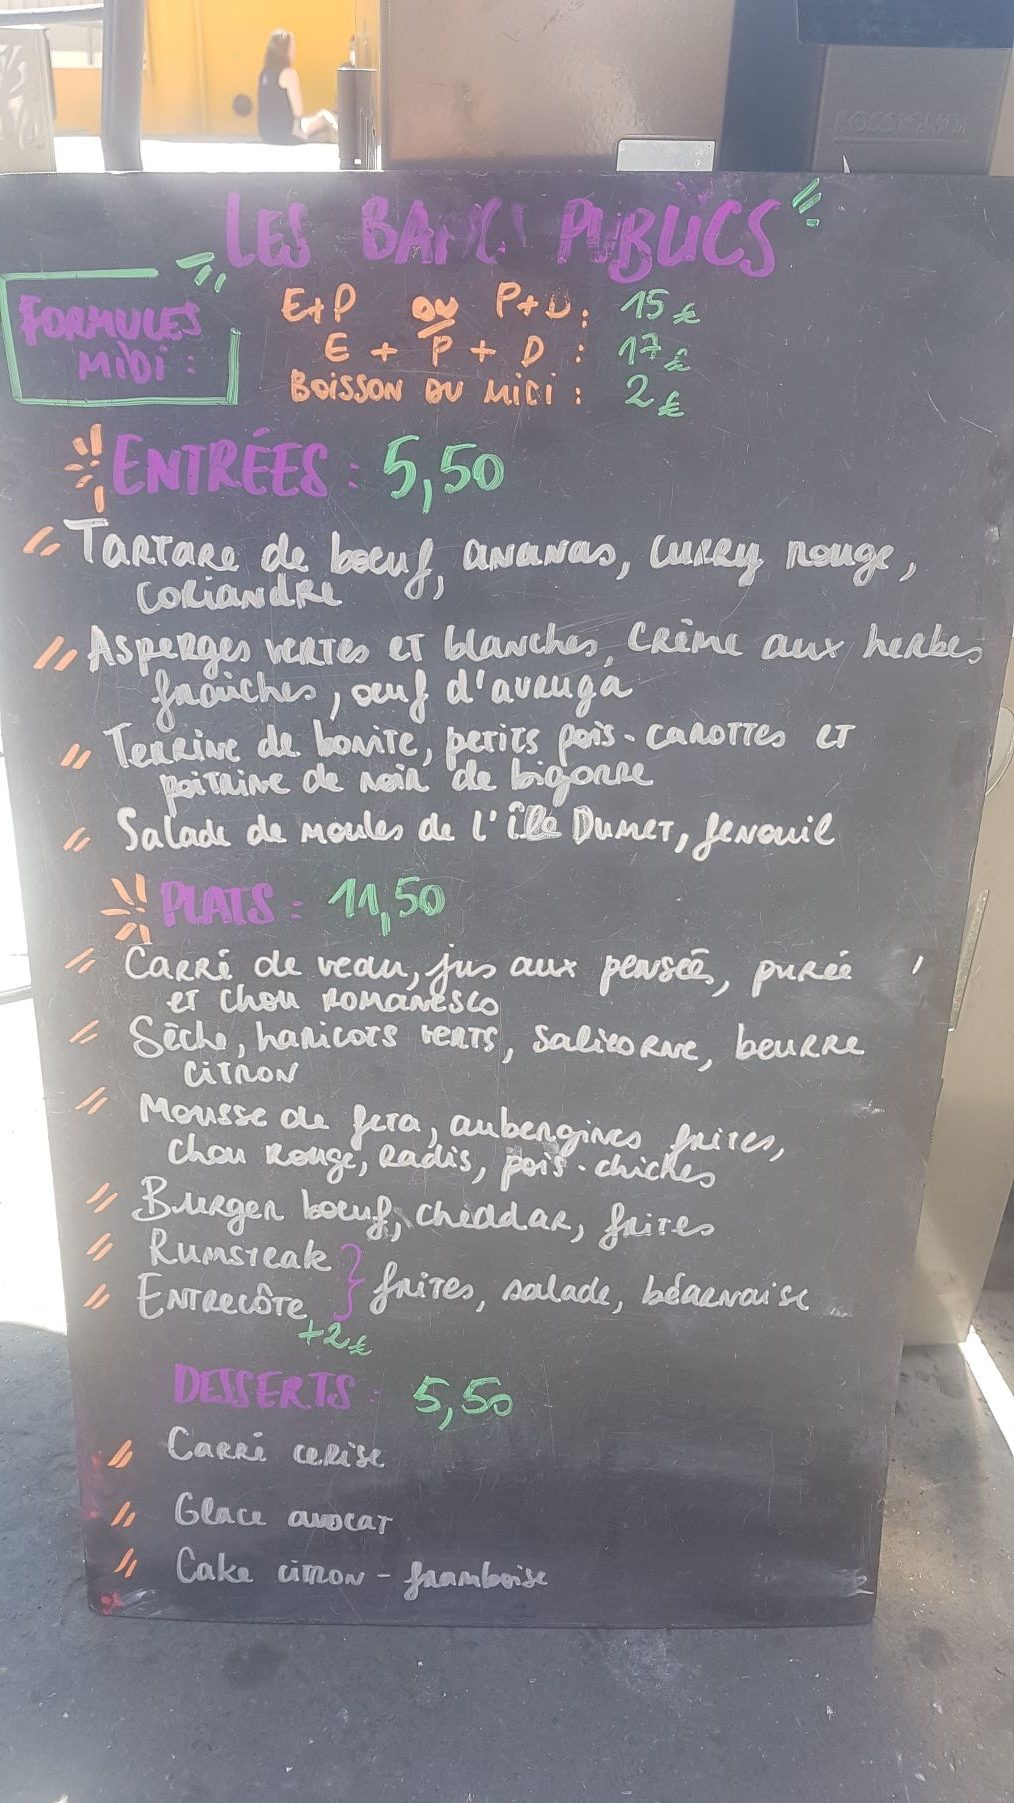 LES BANCS PUBLICS
FORMULES
MIDI :
E+P ou P+D : 15€
E + P + D : 17€
BOISSON DU MIDI : 2€
ENTRÉES : 5,50
TARTARE de boeuf, ananas, curry rouge,
coriandre
Asperges vertes et blanches, crème aux herbes
fraîches, oeuf d'avruga
Terrine de bonite, petits pois-carottes et
poitrine de noir de bigorre
Salade de moules de l'île Dumet, fenouil
PLATS : 11,50
Carré de veau, jus aux pensée, purée
et chou romanesco
Sèche, haricots verts, salicorne, beurre
citron
Mousse de feta, aubergines frites,
chou rouge, radis, pois-chiches
Burger boeuf, cheddar, frites
Rumsteak
Entrecôte } frites, salade, béarnaise
+2€
DESSERTS : 5,50
Carré cerise
Glace avocat
Cake citron - framboise